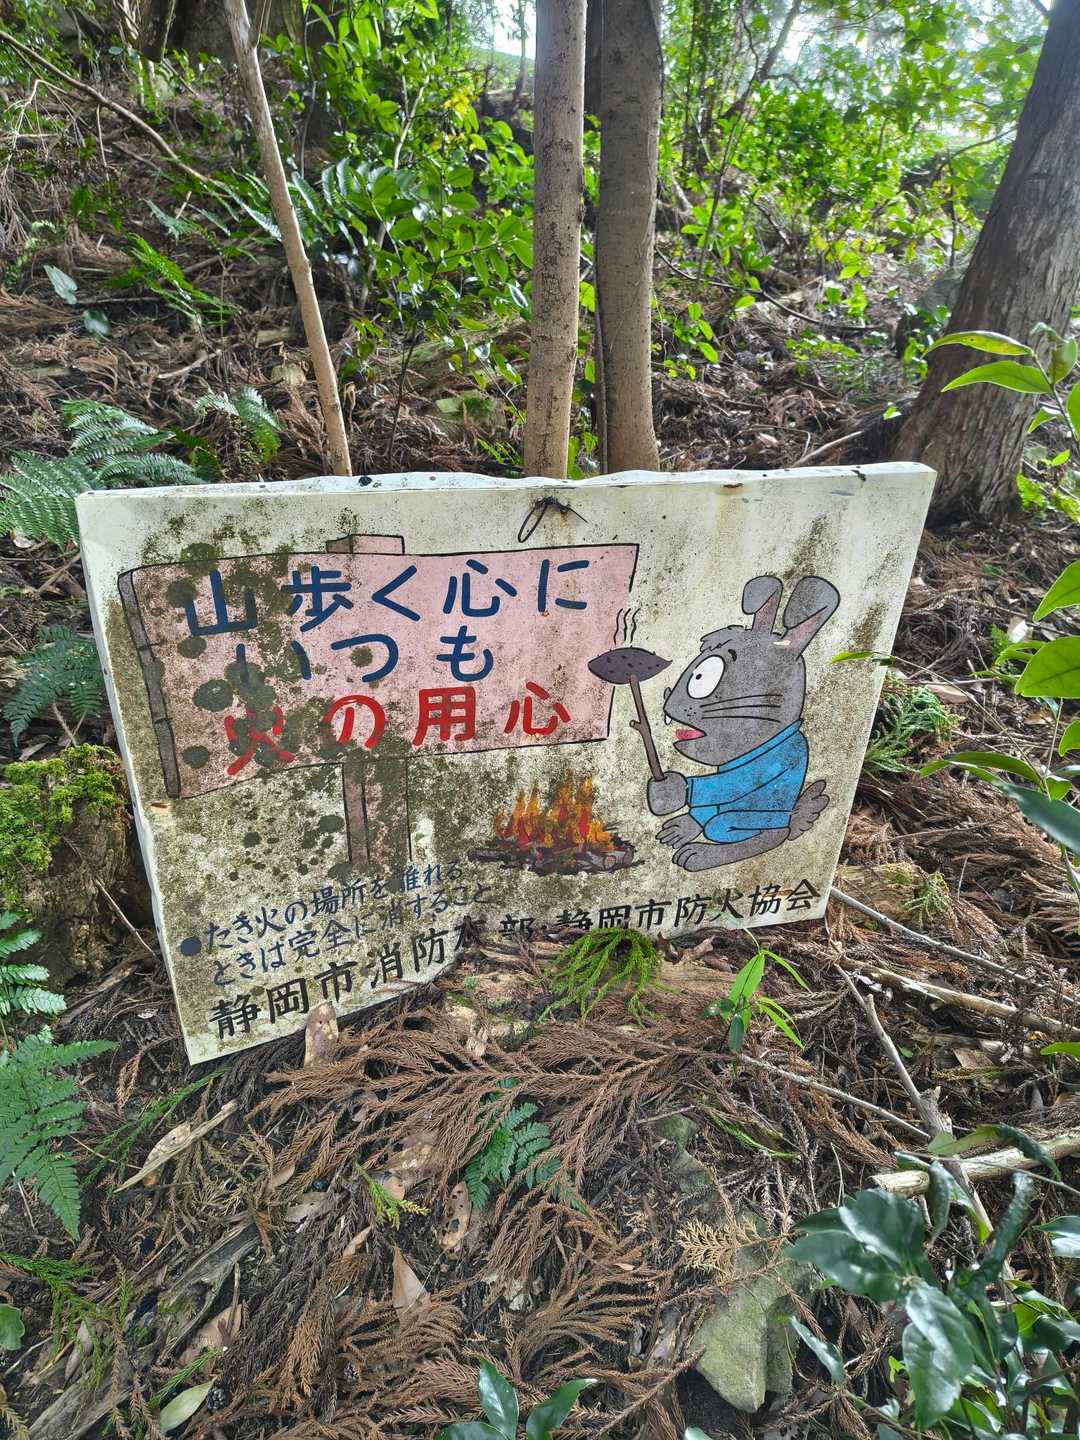 山歩く心に
いつも
火の用心
●たき火の場所を離れる
ときは完全に消すること
静岡市消防本部・静岡市防火協会